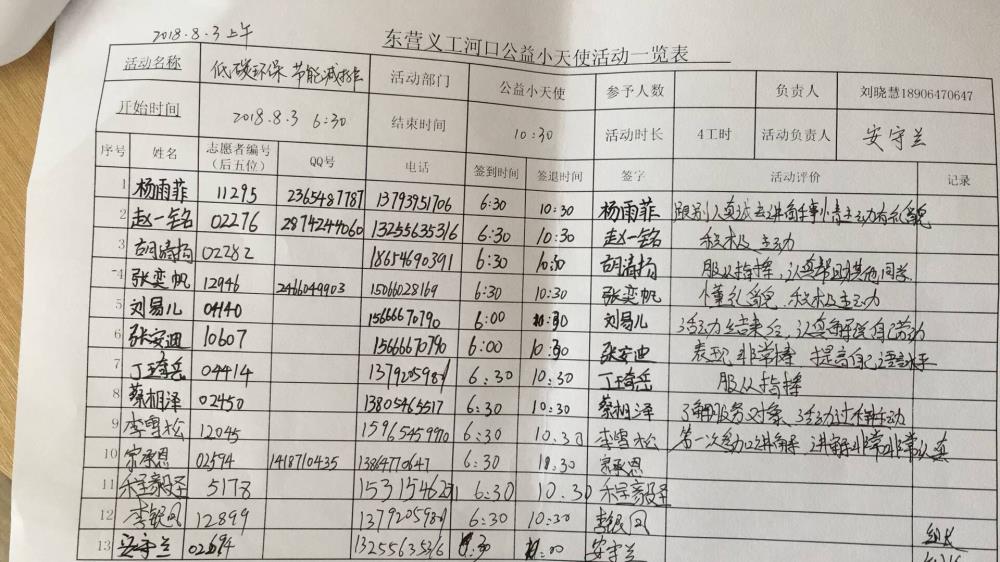 2018.8.3上午
东营义工河口公益小天使活动一览表
活动名称 低碳环保 节能减排 活动部门 公益小天使 参予人数 负责人 刘晓慧18906470647
开始时间 2018.8.3 6:30 结束时间 10:30 活动时长 4工时 活动负责人 安守兰
序号 姓名 志愿者编号（后五位） QQ号 电话 签到时间 签退时间 签字 活动评价 记录
1 杨雨菲 11295 2365487787 13793951706 6:30 10:30 杨雨菲
2 赵一铭 02276 2874244060 13255635316 6:30 10:30 赵一铭 积极主动
3 胡清扬 02282 18654690391 6:30 10:30 胡清扬 服从指挥，认真帮助其他同学
4 张奕帆 12946 2466049903 15066028169 6:30 10:30 张奕帆 懂礼貌、积极主动
5 刘易儿 04140 15666670790 6:00 10:30 刘易儿
6 张安迪 10607 15666670790 6:00 10:30 张安迪 表现非常棒 提高自己语言水平
7 丁琦岳 04414 6:30 10:30 丁琦岳 服从指挥
8 蔡相泽 02450 13805465517 6:30 10:30 蔡相泽 了解服务对象、活动过程生动
9 李雪松 12045 15965459970 6:30 10:30 李雪松 第一次参加讲解 讲解非常非常认真
10 宗承恩 02574 1418710435 13864770647 6:30 10:30 宗承恩
11 5178 6:30 10:30
12 李银凤 12899 6:30 10:30 李银凤 组长
13 安守兰 02694 13255635316 安守兰